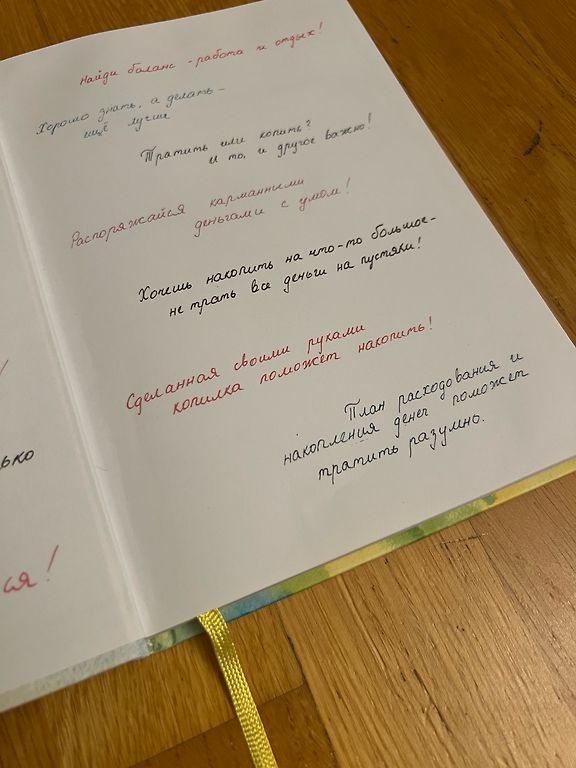 Найди баланс - работа и отдых!
Хорошо знать, а делать -
ещё лучше
Тратить или копить?
И то, и другое важно!
Распоряжайся карманными
деньгами с умом!
Хочешь накопить на что-то большое-
не трать все деньги на пустяки!
Сделанная своими руками
копилка поможет накопить!
План расходования и
накопления денег поможет
тратить разумно.
!
ько
ся!